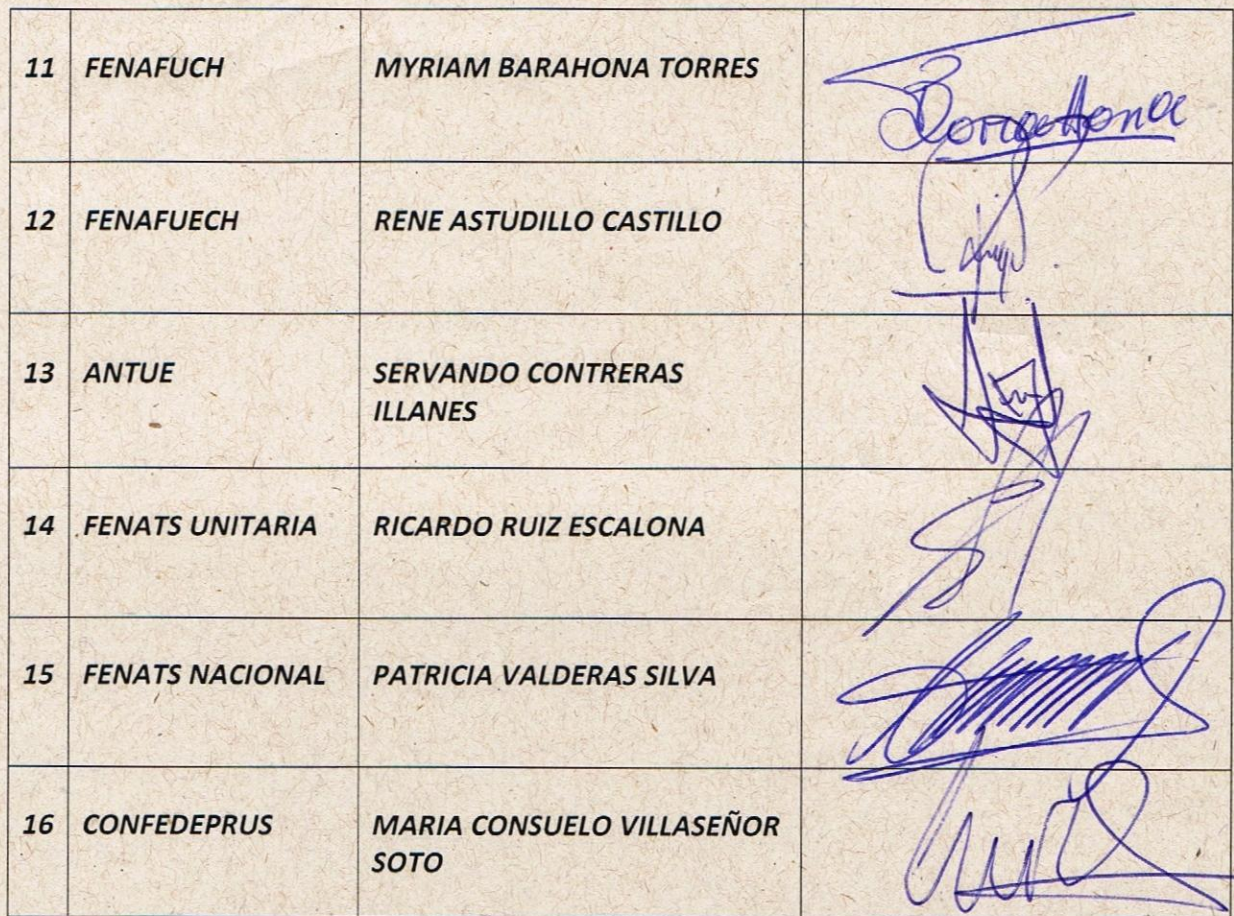 11 FENAFUCH MYRIAM BARAHONA TORRES Barahona
12 FENAFUECH RENE ASTUDILLO CASTILLO
13 ANTUE SERVANDO CONTRERAS
ILLANES
14 FENATS UNITARIA RICARDO RUIZ ESCALONA
15 FENATS NACIONAL PATRICIA VALDERAS SILVA
16 CONFEDEPRUS MARIA CONSUELO VILLASEÑOR
SOTO